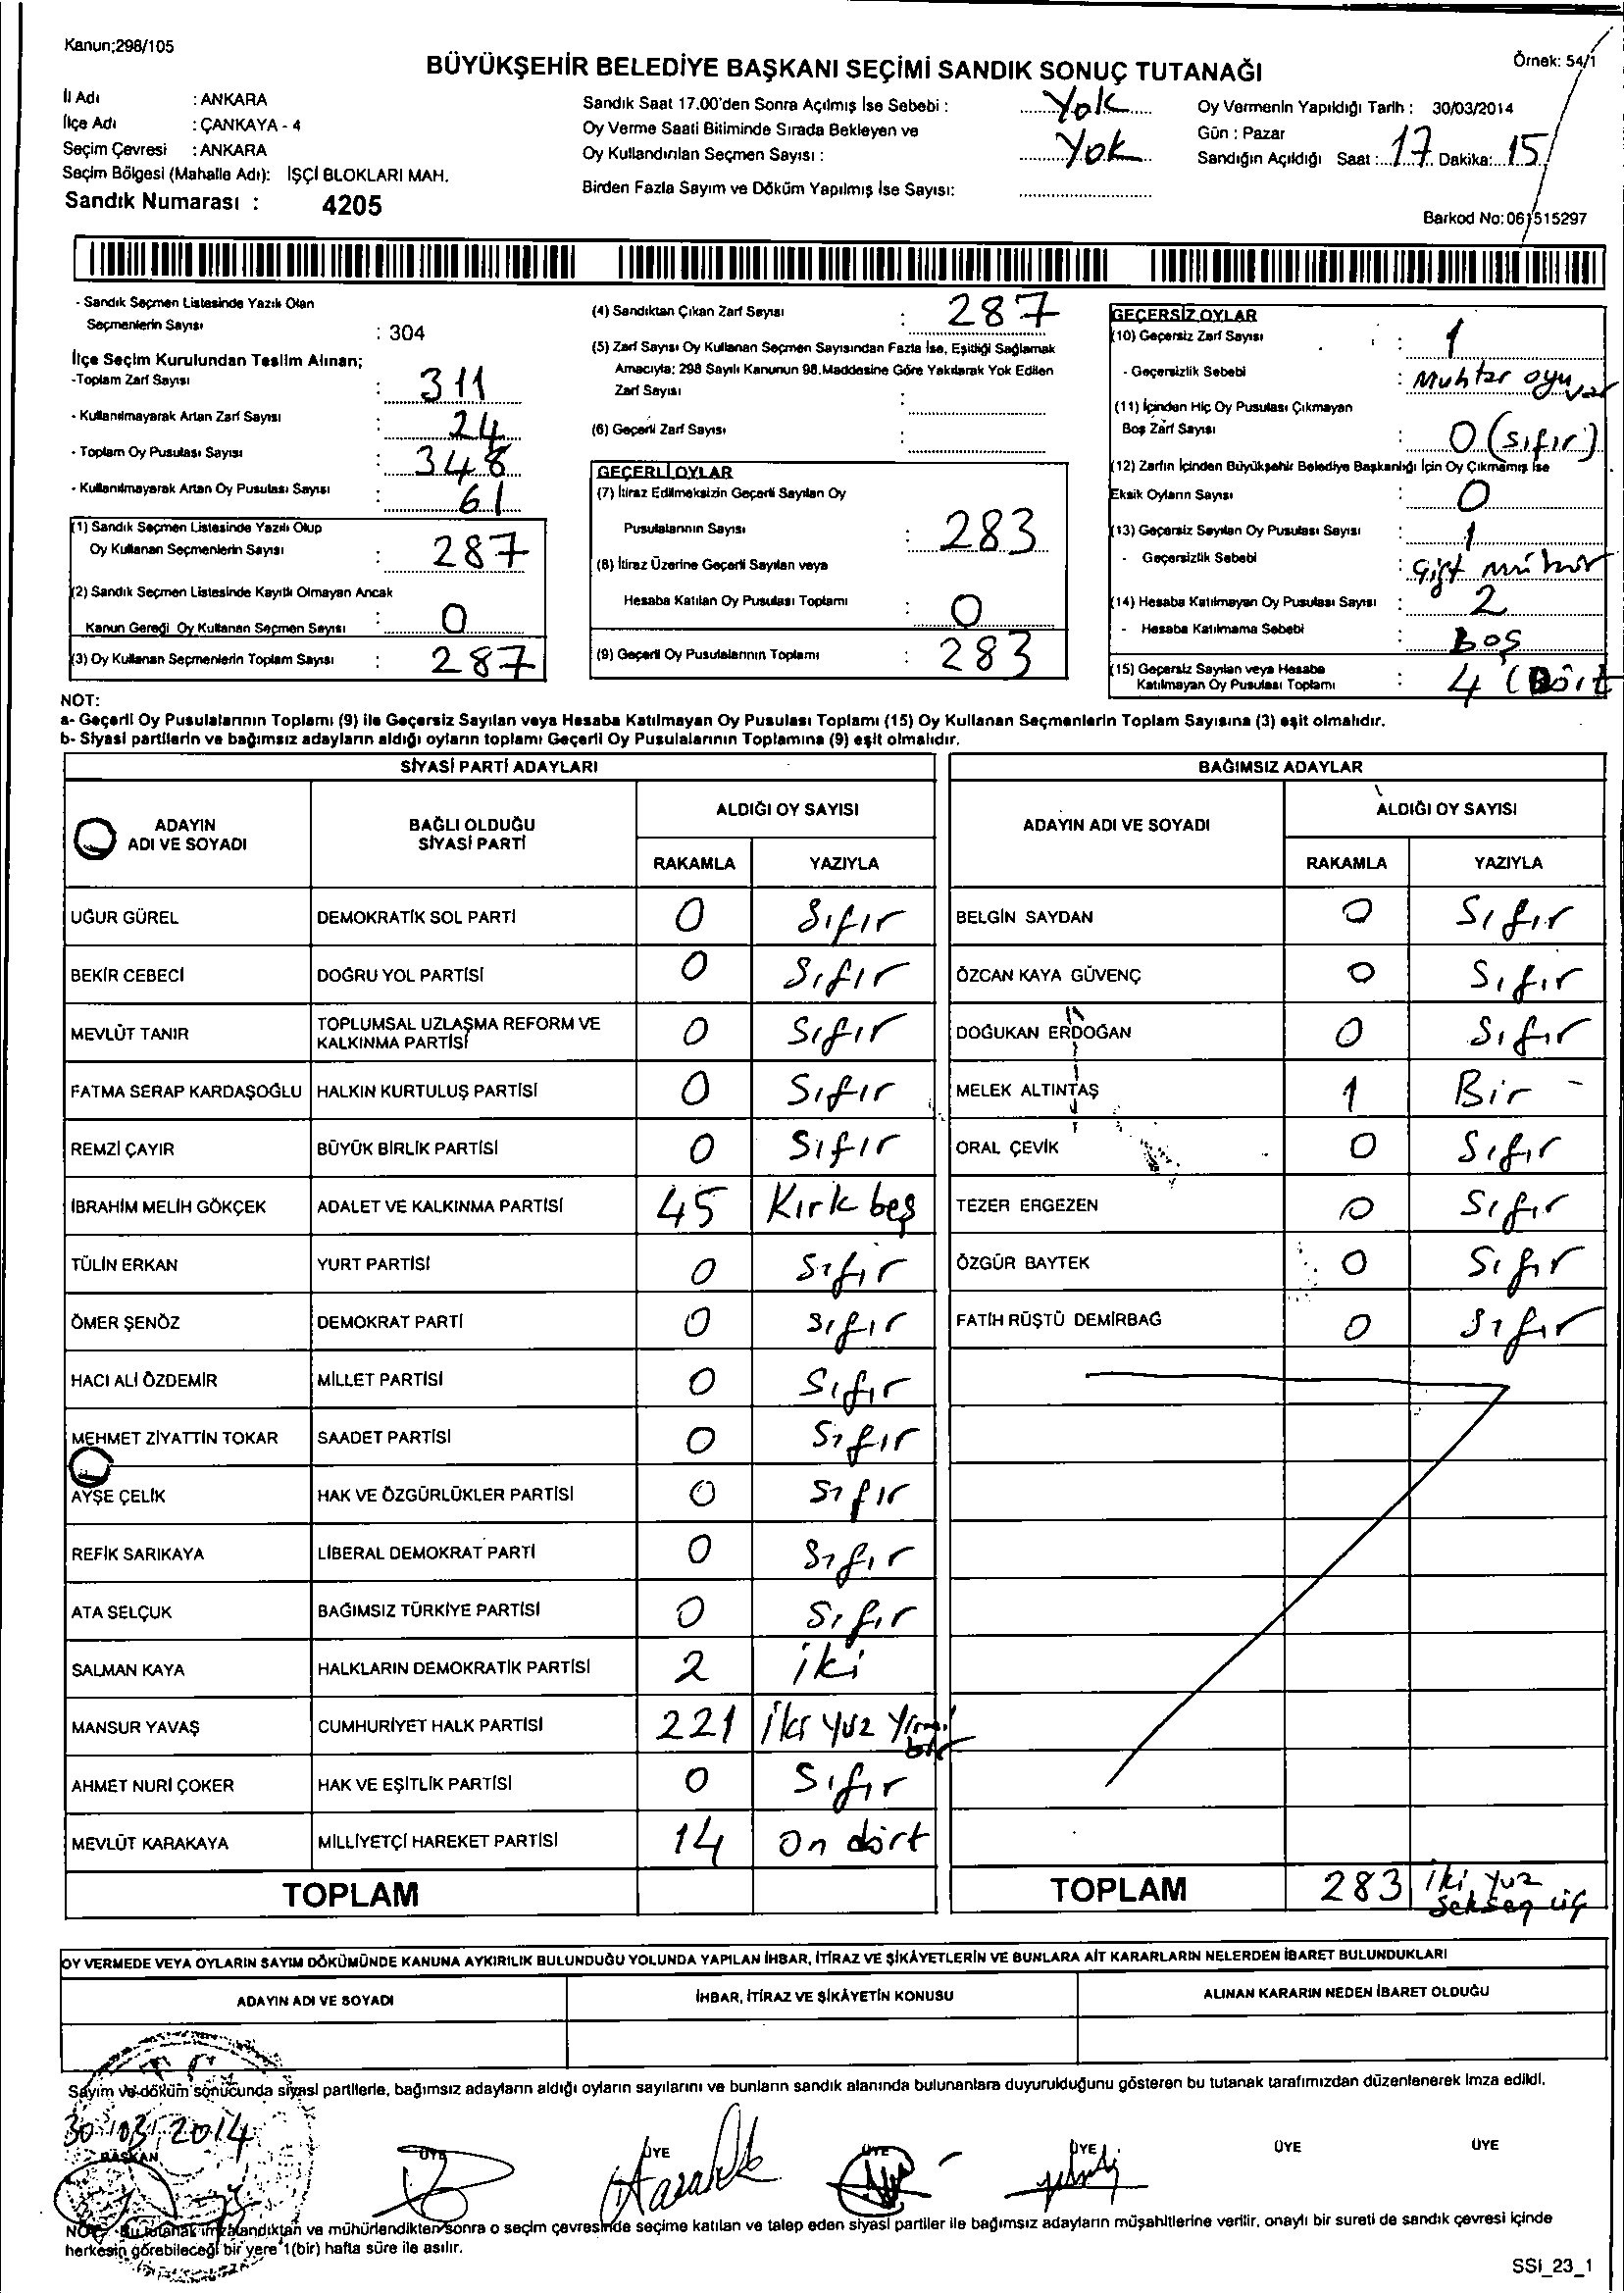 Kanun;298/105
BÜYÜKŞEHİR BELEDİYE BAŞKANI SEÇİMİ SANDIK SONUÇ TUTANAĞI
Örnek: 54/1
İl Adı : ANKARA
İlçe Adı : ÇANKAYA - 4
Seçim Çevresi : ANKARA
Seçim Bölgesi (Mahalle Adı): İŞÇİ BLOKLARI MAH.
Sandık Numarası : 4205
Sandık Saat 17.00'den Sonra Açılmış İse Sebebi : Yok
Oy Verme Saati Bitiminde Sırada Bekleyen ve
Oy Kullandırılan Seçmen Sayısı : Yok
Birden Fazla Sayım ve Döküm Yapılmış İse Sayısı:
Oy Vermenin Yapıldığı Tarih : 30/03/2014
Gün : Pazar
Sandığın Açıldığı Saat : 17 Dakika: 15
Barkod No:061515297
- Sandık Seçmen Listesinde Yazılı Olan
Seçmenlerin Sayısı : 304
İlçe Seçim Kurulundan Teslim Alınan;
-Toplam Zarf Sayısı : 311
- Kullanılmayarak Artan Zarf Sayısı : 24
- Toplam Oy Pusulası Sayısı : 348
- Kullanılmayarak Artan Oy Pusulası Sayısı : 61
(1) Sandık Seçmen Listesinde Yazılı Olup
Oy Kullanan Seçmenlerin Sayısı : 287
(2) Sandık Seçmen Listesinde Kayıtlı Olmayan Ancak
Kanun Gereği Oy Kullanan Seçmen Sayısı : 0
(3) Oy Kullanan Seçmenlerin Toplam Sayısı : 287
(4) Sandıktan Çıkan Zarf Sayısı : 287
(5) Zarf Sayısı Oy Kullanan Seçmen Sayısından Fazla İse, Eşitliği Sağlamak
Amacıyla: 298 Sayılı Kanunun 98.Maddesine Göre Yakılarak Yok Edilen
Zarf Sayısı :
(6) Geçerli Zarf Sayısı :
GEÇERLİ OYLAR
(7) İtiraz Edilmeksizin Geçerli Sayılan Oy
Pusulalarının Sayısı : 283
(8) İtiraz Üzerine Geçerli Sayılan veya
Hesaba Katılan Oy Pusulası Toplamı : 0
(9) Geçerli Oy Pusulalarının Toplamı : 283
GEÇERSİZ OYLAR
(10) Geçersiz Zarf Sayısı : 1
- Geçersizlik Sebebi : Muhtar oyu var
(11) İçinden Hiç Oy Pusulası Çıkmayan
Boş Zarf Sayısı : 0 (sıfır)
(12) Zarfın İçinden Büyükşehir Belediye Başkanlığı İçin Oy Çıkmamış İse
Eksik Oyların Sayısı : 0
(13) Geçersiz Sayılan Oy Pusulası Sayısı : 1
- Geçersizlik Sebebi : Çift mühür
(14) Hesaba Katılmayan Oy Pusulası Sayısı : 2
- Hesaba Katılmama Sebebi : Boş
(15) Geçersiz Sayılan veya Hesaba
Katılmayan Oy Pusulası Toplamı : 4 (Dört
NOT:
a- Geçerli Oy Pusulalarının Toplamı (9) ile Geçersiz Sayılan veya Hesaba Katılmayan Oy Pusulası Toplamı (15) Oy Kullanan Seçmenlerin Toplam Sayısına (3) eşit olmalıdır.
b- Siyasi partilerin ve bağımsız adayların aldığı oyların toplamı Geçerli Oy Pusulalarının Toplamına (9) eşit olmalıdır.
SİYASİ PARTİ ADAYLARI
ADAYIN ADI VE SOYADI BAĞLI OLDUĞU SİYASİ PARTİ ALDIĞI OY SAYISI
RAKAMLA YAZIYLA
UĞUR GÜREL DEMOKRATİK SOL PARTİ 0 Sıfır
BEKİR CEBECİ DOĞRU YOL PARTİSİ 0 Sıfır
MEVLÜT TANIR TOPLUMSAL UZLAŞMA REFORM VE KALKINMA PARTİSİ 0 Sıfır
FATMA SERAP KARDAŞOĞLU HALKIN KURTULUŞ PARTİSİ 0 Sıfır
REMZİ ÇAYIR BÜYÜK BİRLİK PARTİSİ 0 Sıfır
İBRAHİM MELİH GÖKÇEK ADALET VE KALKINMA PARTİSİ 45 Kırk beş
TÜLİN ERKAN YURT PARTİSİ 0 Sıfır
ÖMER ŞENÖZ DEMOKRAT PARTİ 0 Sıfır
HACI ALİ ÖZDEMİR MİLLET PARTİSİ 0 Sıfır
MEHMET ZİYATTİN TOKAR SAADET PARTİSİ 0 Sıfır
AYŞE ÇELİK HAK VE ÖZGÜRLÜKLER PARTİSİ 0 Sıfır
REFİK SARIKAYA LİBERAL DEMOKRAT PARTİ 0 Sıfır
ATA SELÇUK BAĞIMSIZ TÜRKİYE PARTİSİ 0 Sıfır
SALMAN KAYA HALKLARIN DEMOKRATİK PARTİSİ 2 iki
MANSUR YAVAŞ CUMHURİYET HALK PARTİSİ 221 iki yuz yirmi bir
AHMET NURİ ÇOKER HAK VE EŞİTLİK PARTİSİ 0 Sıfır
MEVLÜT KARAKAYA MİLLİYETÇİ HAREKET PARTİSİ 14 On dört
TOPLAM
BAĞIMSIZ ADAYLAR
ADAYIN ADI VE SOYADI ALDIĞI OY SAYISI
RAKAMLA YAZIYLA
BELGİN SAYDAN 0 Sıfır
ÖZCAN KAYA GÜVENÇ 0 Sıfır
DOĞUKAN ERDOĞAN 0 Sıfır
MELEK ALTINTAŞ 1 Bir -
ORAL ÇEVİK 0 Sıfır
TEZER ERGEZEN 0 Sıfır
ÖZGÜR BAYTEK 0 Sıfır
FATİH RÜŞTÜ DEMİRBAĞ 0 Sıfır
TOPLAM 283 iki yuz seksen üç
OY VERMEDE VEYA OYLARIN SAYIM DÖKÜMÜNDE KANUNA AYKIRILIK BULUNDUĞU YOLUNDA YAPILAN İHBAR, İTİRAZ VE ŞİKÂYETLERİN VE BUNLARA AİT KARARLARIN NELERDEN İBARET BULUNDUKLARI
ADAYIN ADI VE SOYADI İHBAR, İTİRAZ VE ŞİKÂYETİN KONUSU ALINAN KARARIN NEDEN İBARET OLDUĞU
Sayım ve döküm sonucunda siyasi partilerle, bağımsız adayların aldığı oyların sayılarını ve bunların sandık alanında bulunanlara duyurulduğunu gösteren bu tutanak tarafımızdan düzenlenerek imza edildi.
30/03/2014
BAŞKAN ÜYE ÜYE ÜYE ÜYE ÜYE ÜYE
NOT: Bu tutanak imzalandıktan ve mühürlendikten sonra o seçim çevresinde seçime katılan ve talep eden siyasi partiler ile bağımsız adayların müşahitlerine verilir, onaylı bir sureti de sandık çevresi içinde
herkesin görebileceği bir yere 1(bir) hafta süre ile asılır.
SSI_23_1